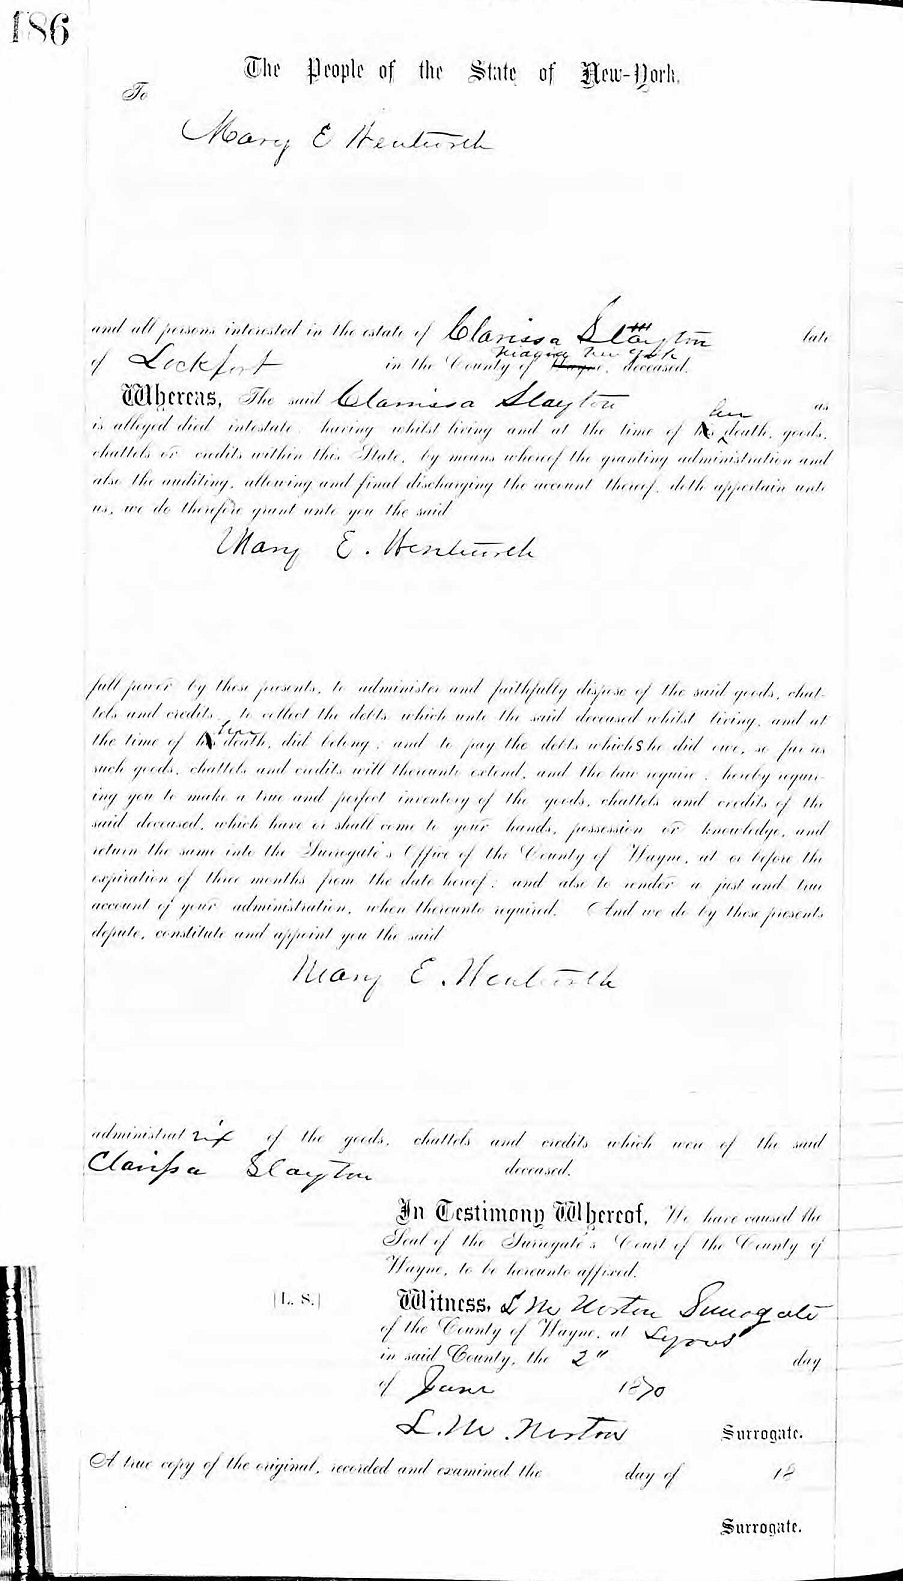 186
The People of the State of New-York,
To
Mary E Wentworth
and all persons interested in the estate of Clarissa Slayton late
Niagra New York
of Lockport in the County of Wayne, deceased.
Whereas, The said Clarissa Slayton as
her
is alleged died intestate, having whilst living and at the time of his death, goods,
chattels or credits within this State, by means whereof the granting administration and
also the auditing, allowing and final discharging the account thereof, doth appertain unto
us, we do therefore grant unto you the said
Mary E. Wentworth
full power by these presents, to administer and faithfully dispose of the said goods, chat-
tels and credits, to collect the debts which unto the said deceased whilst living, and at
her
the time of his death, did belong; and to pay the debts which she did owe, so far as
such goods, chattels and credits will thereunto extend, and the law require; hereby requir-
ing you to make a true and perfect inventory of the goods, chattels and credits of the
said deceased, which have or shall come to your hands, possession or knowledge, and
return the same into the Surrogate's Office of the County of Wayne, at or before the
expiration of three months from the date hereof; and also to render a just and true
account of your administration, when thereunto required. And we do by these presents
depute, constitute and appoint you the said
Mary E. Wentworth
administratrix of the goods, chattels and credits which were of the said
Clarissa Slayton deceased.
In Testimony Whereof, We have caused the
Seal of the Surrogate's Court of the County of
Wayne, to be hereunto affixed.
[L. S.] Witness, L M Norton Surrogate
of the County of Wayne, at Lyons
in said County, the 2" day
of June 1870
L. M. Norton Surrogate.
A true copy of the original, recorded and examined the day of 18
Surrogate.